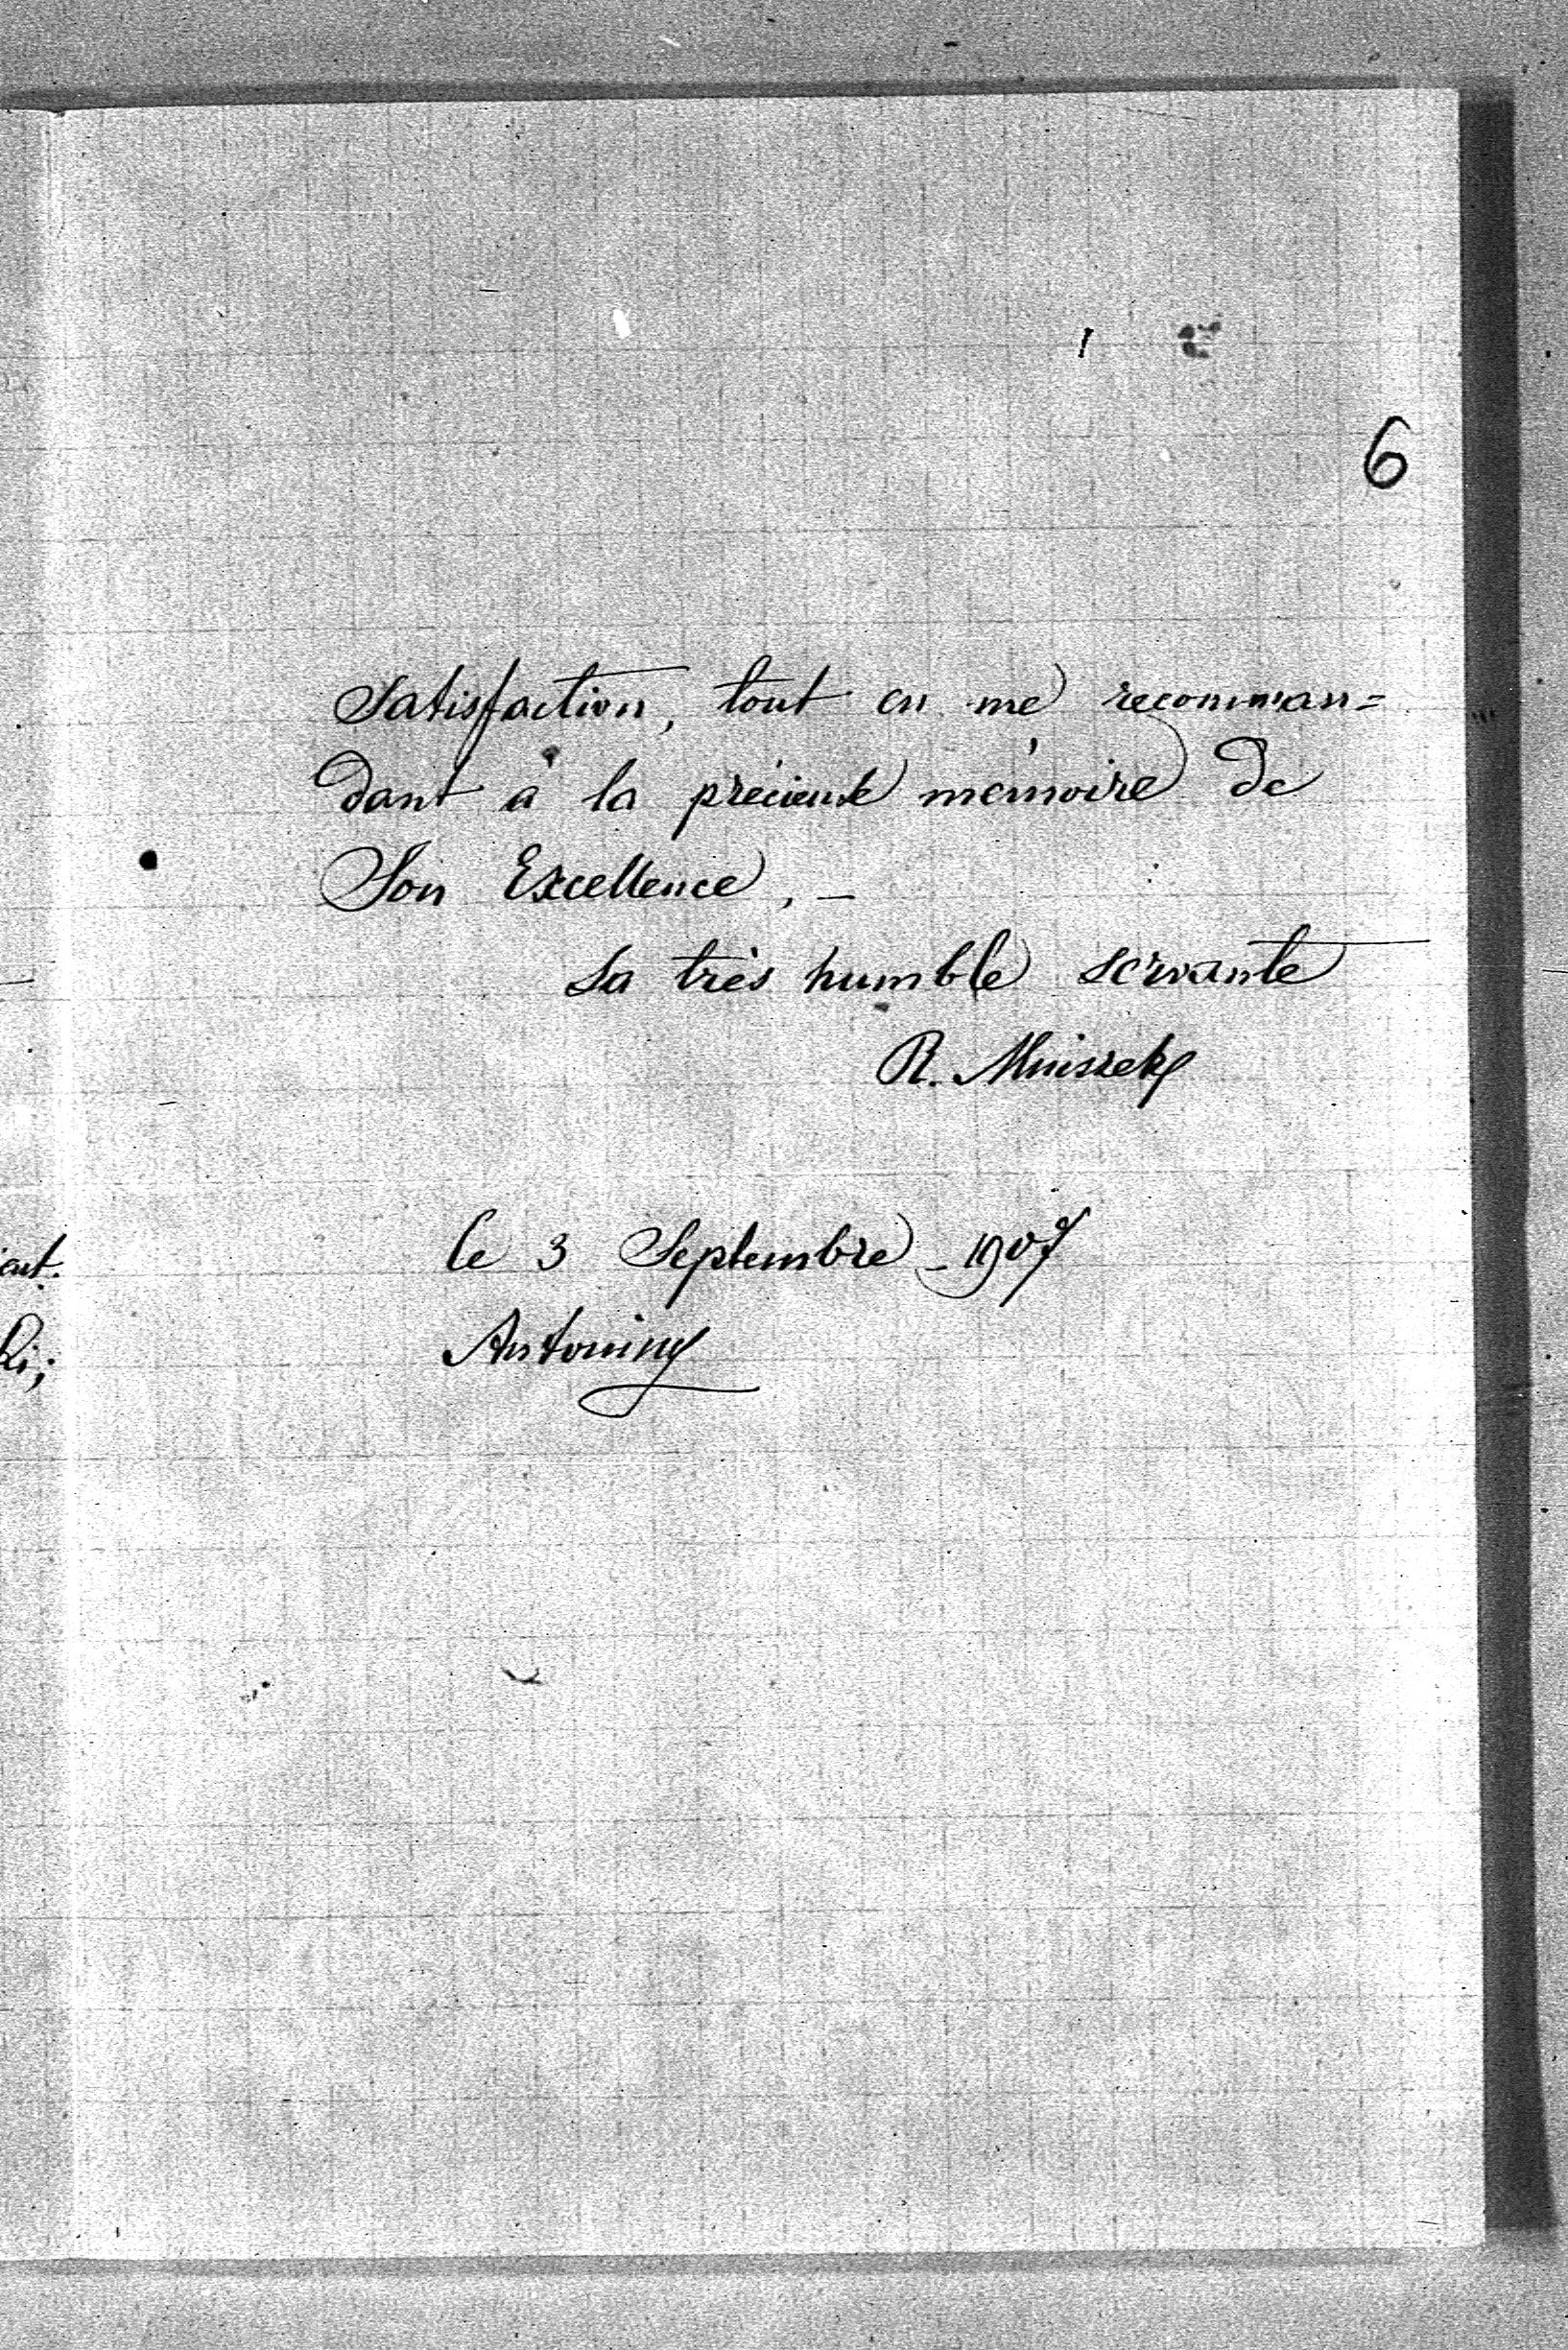 6
Satisfaction, tout en me recomman=
dant à la précieuse mémoire de
Son Excellence, –
sa très humble servante
R. Mniszek
le 3 Septembre – 1907
Antoniny